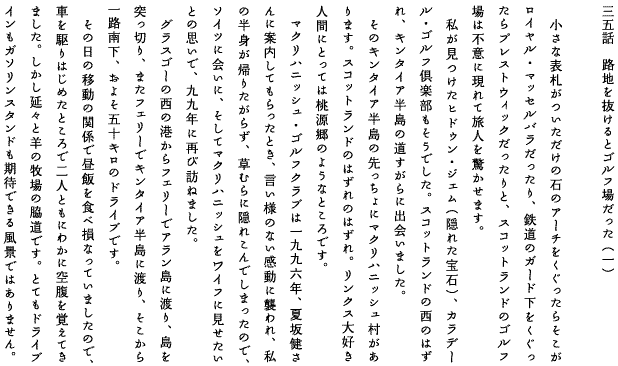 三五話　路地を抜けるとゴルフ場だった（一）
小さな表札がついただけの石のアーチをくぐったらそこが
ロイヤル・マッセルバラだったり、鉄道のガード下をくぐっ
たらプレストウィックだったりと、スコットランドのゴルフ
場は不意に現れて旅人を驚かせます。
私が見つけたヒドゥン・ジェム（隠れた宝石）、カラデー
ル・ゴルフ倶楽部もそうでした。スコットランドの西のはず
れ、キンタイア半島の道すがらに出会いました。
そのキンタイア半島の先っちょにマクリハニッシュ村があ
ります。スコットランドのはずれのはずれ。リンクス大好き
人間にとっては桃源郷のようなところです。
マクリハニッシュ・ゴルフクラブは一九九六年、夏坂健さ
んに案内してもらったとき、言い様のない感動に襲われ、私
の半身が帰りたがらず、草むらに隠れこんでしまったので、
ソイツに会いに、そしてマクリハニッシュをワイフに見せたい
との思いで、九九年に再び訪ねました。
グラスゴーの西の港からフェリーでアラン島に渡り、島を
突っ切り、またフェリーでキンタイア半島に渡り、そこから
一路南下、およそ五十キロのドライブです。
その日の移動の関係で昼飯を食べ損なっていましたので、
車を駆りはじめたところで二人ともにわかに空腹を覚えてき
ました。しかし延々と羊の牧場の脇道です。とてもドライブ
インもガソリンスタンドも期待できる風景ではありません。